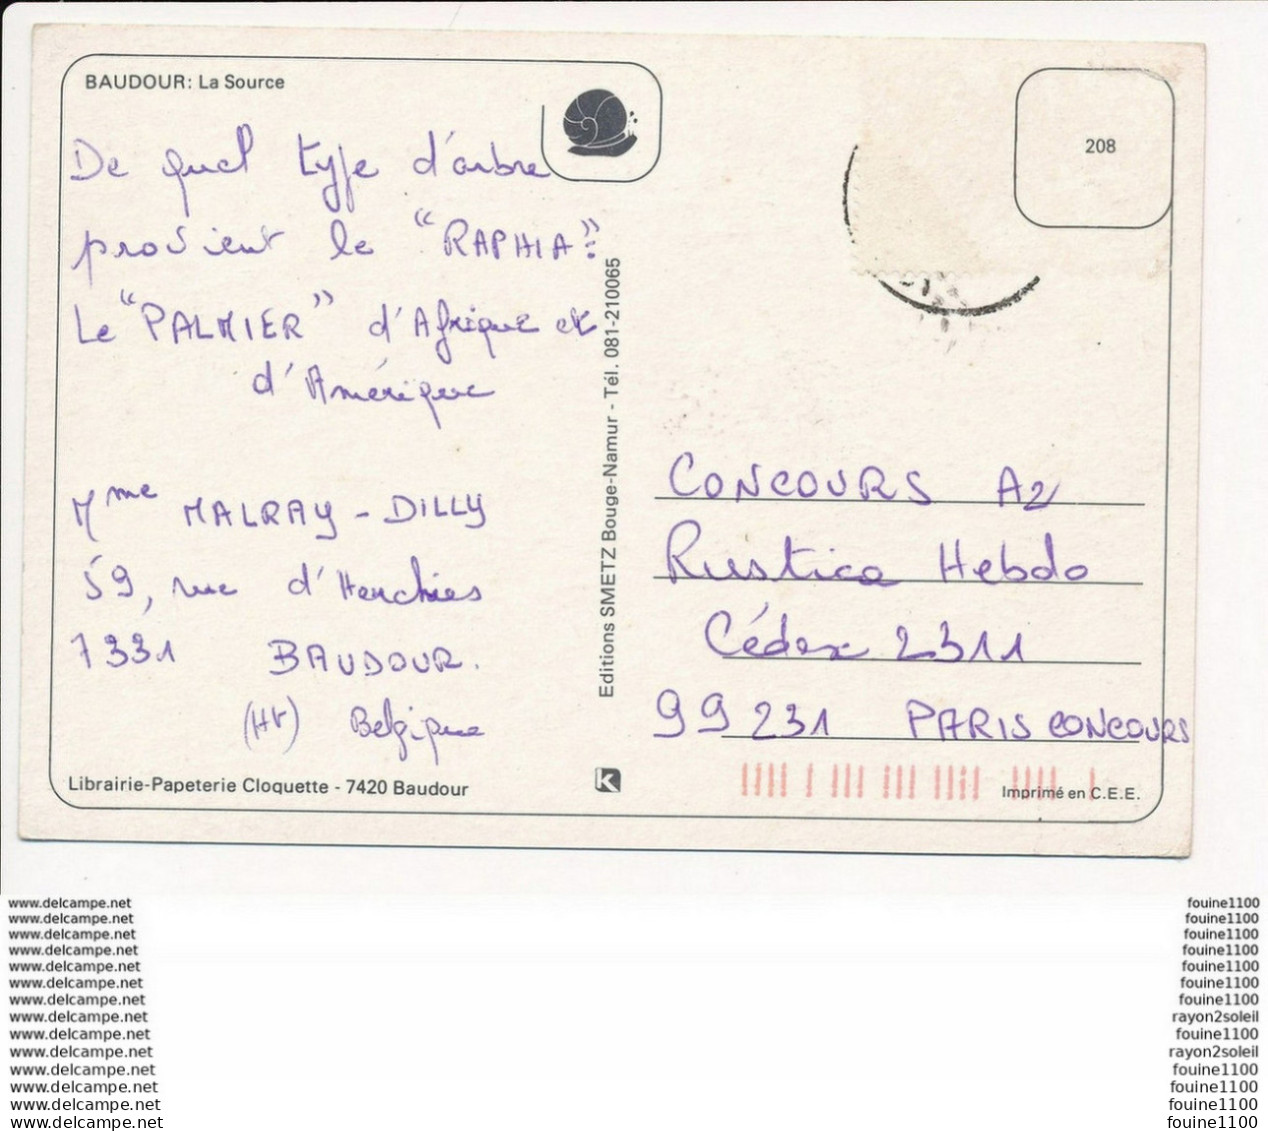 BAUDOUR: La Source
208
De quel type d'arbre
provient le "RAPHIA":
Le "PALMIER" d'Afrique et
d'Amérique
Mme MALRAY - DILLY
59, rue d'Herchies
7331 BAUDOUR.
(Ht) Belgique
Librairie-Papeterie Cloquette - 7420 Baudour
Editions SMETZ Bouge-Namur - Tél. 081-210065
K
CONCOURS A2
Rustica Hebdo
Cédex 2311
99231 PARIS CONCOURS
Imprimé en C.E.E.
www.delcampe.net
www.delcampe.net
www.delcampe.net
www.delcampe.net
www.delcampe.net
www.delcampe.net
www.delcampe.net
www.delcampe.net
www.delcampe.net
www.delcampe.net
www.delcampe.net
www.delcampe.net
www.delcampe.net
www.delcampe.net
fouine1100
fouine1100
fouine1100
fouine1100
fouine1100
fouine1100
fouine1100
rayon2soleil
fouine1100
rayon2soleil
fouine1100
fouine1100
fouine1100
fouine1100